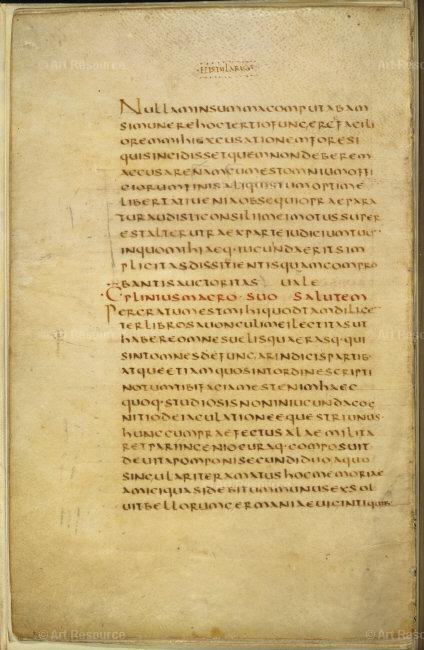 ·EPISTULARUM·
NULLAMINSUMMACOMPUTABAM
SIMUNEREHOCTERTIOFUNGERERFACILI
OREMMIHIEXCUSATIONEMFORESI
QUISINCIDISSETQUEMNONDEBEREM
ACCUSARENAMCUMESTOMNIUMOFFI
CIORUMFINISALIQUISTUMOPTIME
LIBERTATIVENIAOBSEQUIOPRAEPARA
TURAUDISTICONSILIIMEIMOTUSSUPER
ESTALTERUTRAEXPARTEIUDICIUMTUU
INQUOMIHIAEQ·IUCUNDAERITSIM
PLICITASDISSITIENTISQUAMCOMPRO
BANTISAUCTORITAS UALE
·C·PLINIUSMACRO·SUO SALUTEM
PERGRATUMESTMIHIQUODTAMDILIGE
TERLIBROSAUONCULIMEILECTITASUT
HABEREOMNESUELISQUAERASQ·QUI
SINTOMNESDEFUNGARINDICISPARTIB·
ATQUEETIAMQUOSINTORDINESCRIPTI
NOTUMTIBIFACIAMESTENIMHAEC
QUOQ·STUDIOSISNONINIUCUNDACOG
NITIODEIACULATIONEEQUESTRIUNUS·
HUNCCUMPRAEFECTUSALAEMILITA
RETPARIINGENIOCURAQ·COMPOSUIT·
DEUITAPOMPONISECUNDIDUOAQUO
SINGULARITERAMATUSHOCMEMORIAE
AMICIQUASIDEBITUMMUNUSEXSOL
UITBELLORUMGERMANIAEUIGINTIQUIB·
© Art Resource